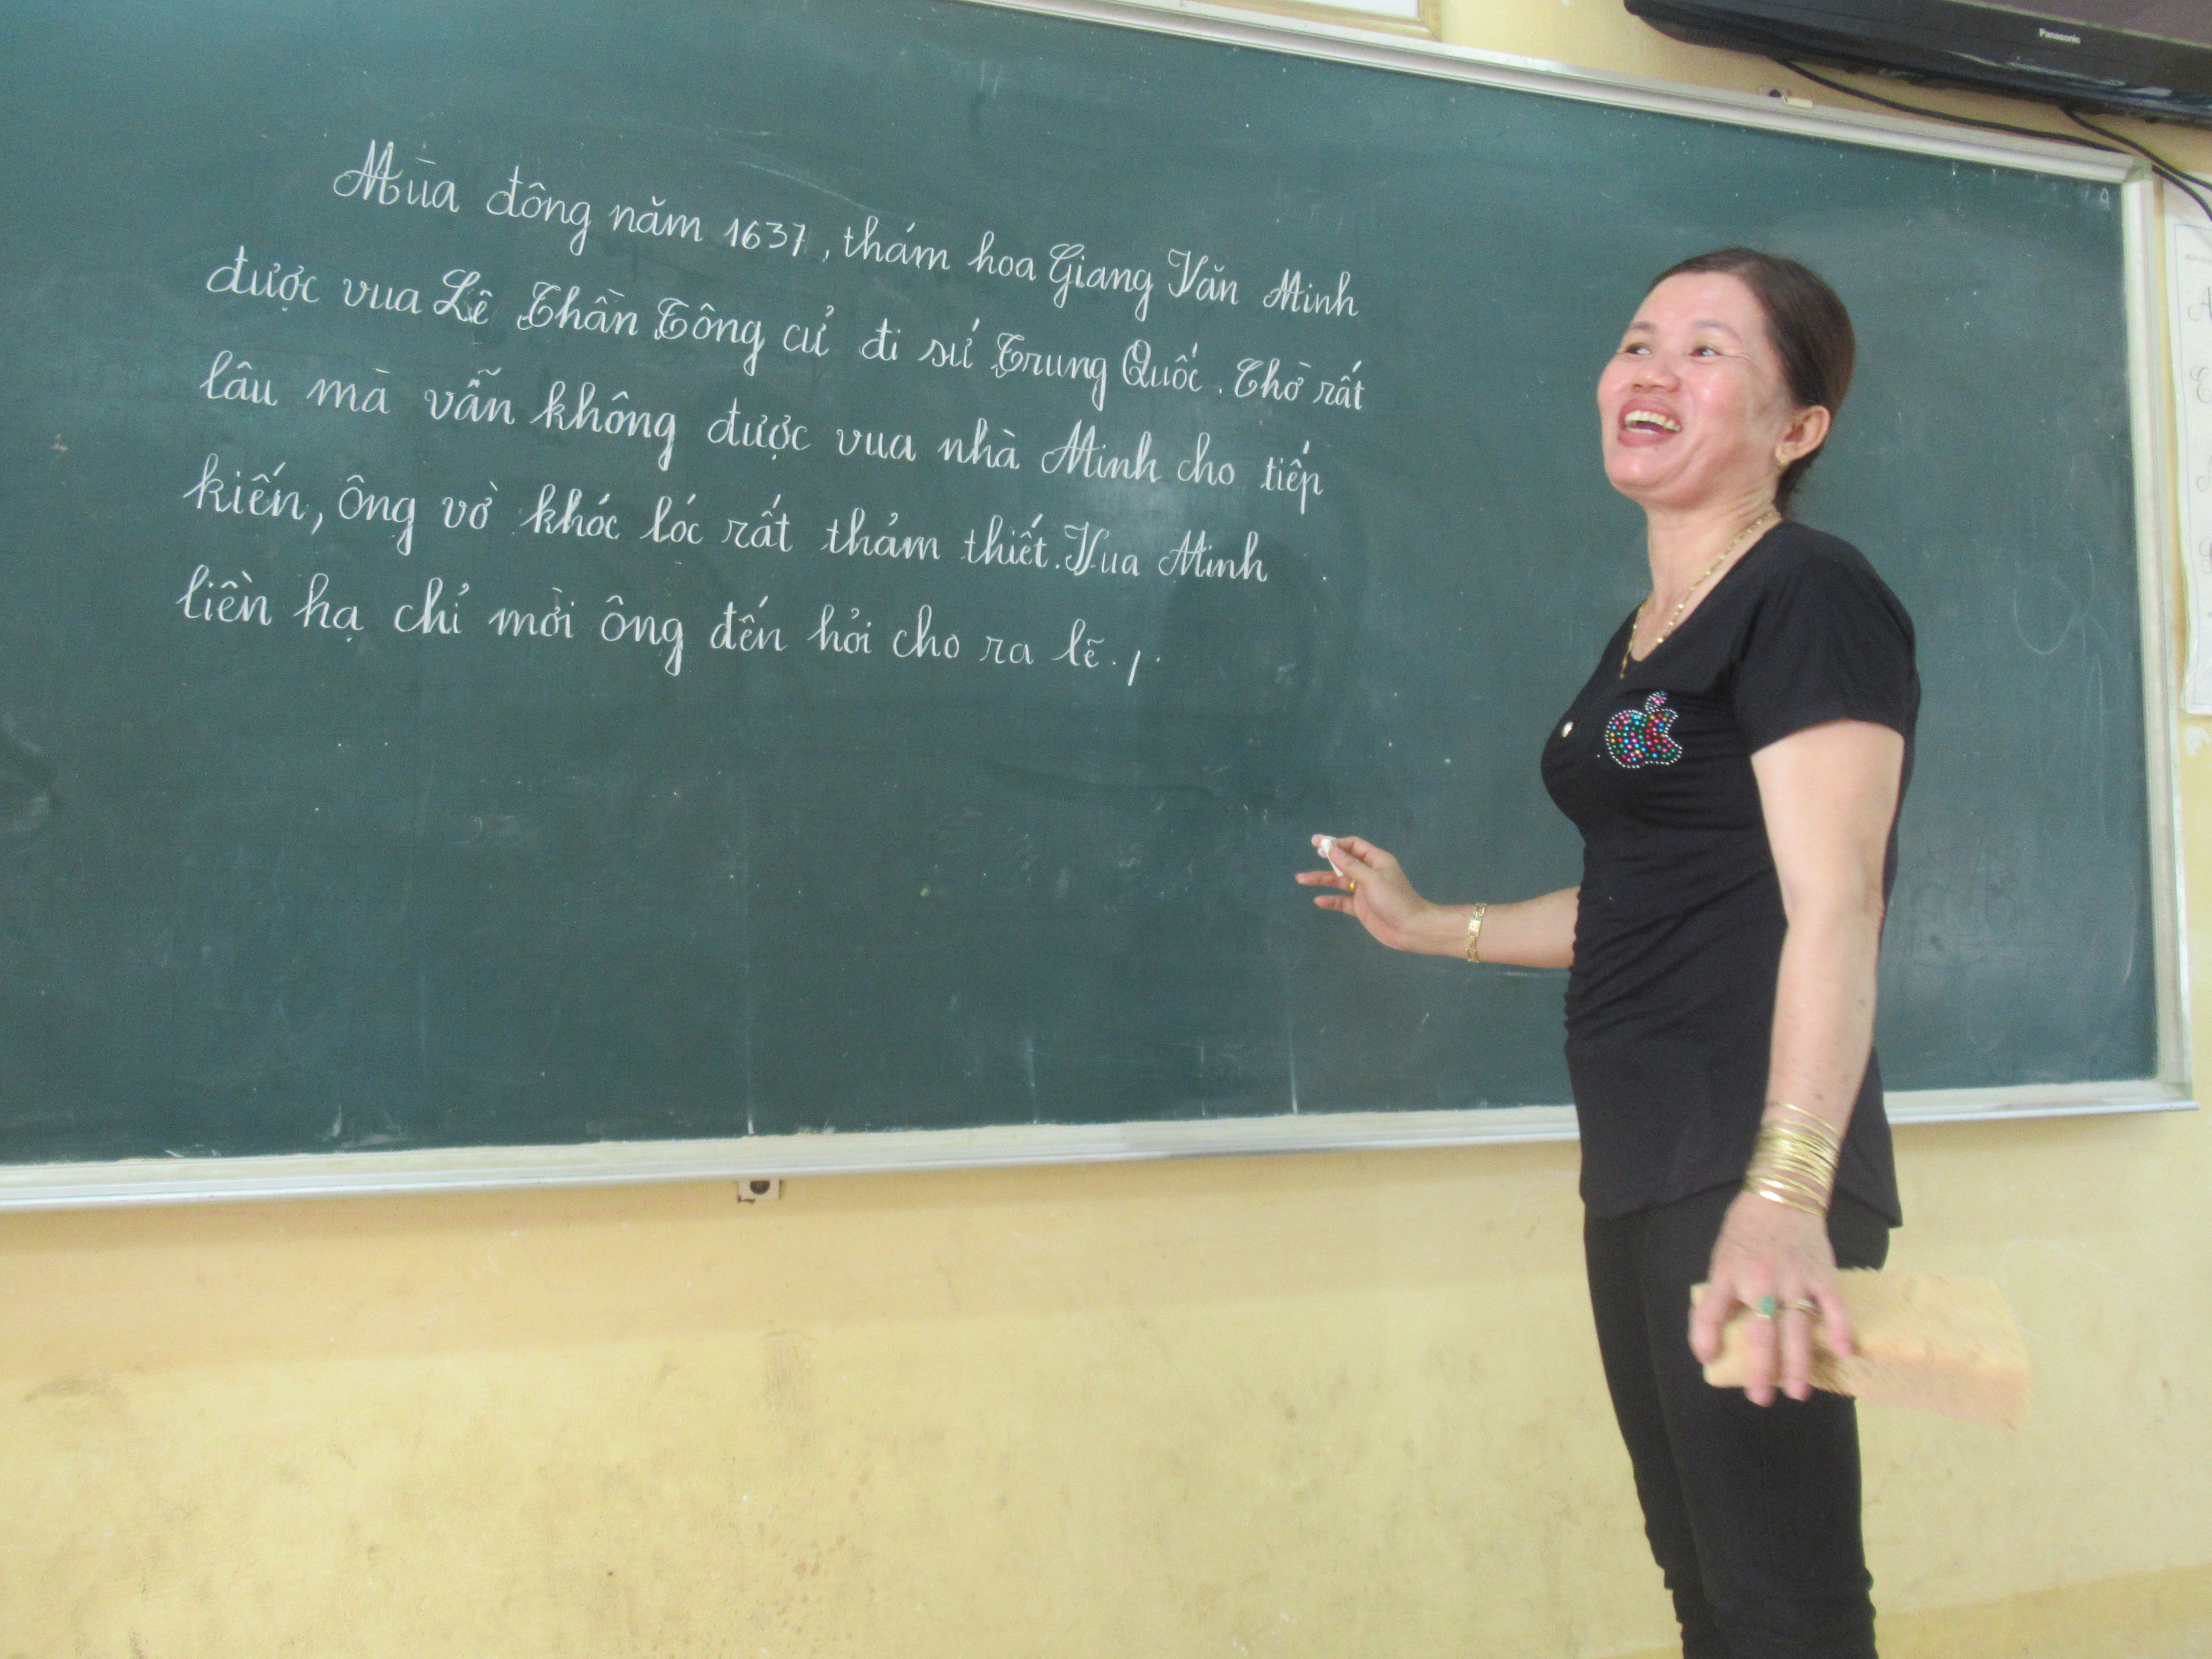 Mùa đông năm 1637, thám hoa Giang Văn Minh
được vua Lê Thần Tông cử đi sứ Trung Quốc. Chờ rất
lâu mà vẫn không được vua nhà Minh cho tiếp
kiến, ông vờ khóc lóc rất thảm thiết. Vua Minh
liền hạ chỉ mời ông đến hỏi cho ra lẽ./.
Panasonic